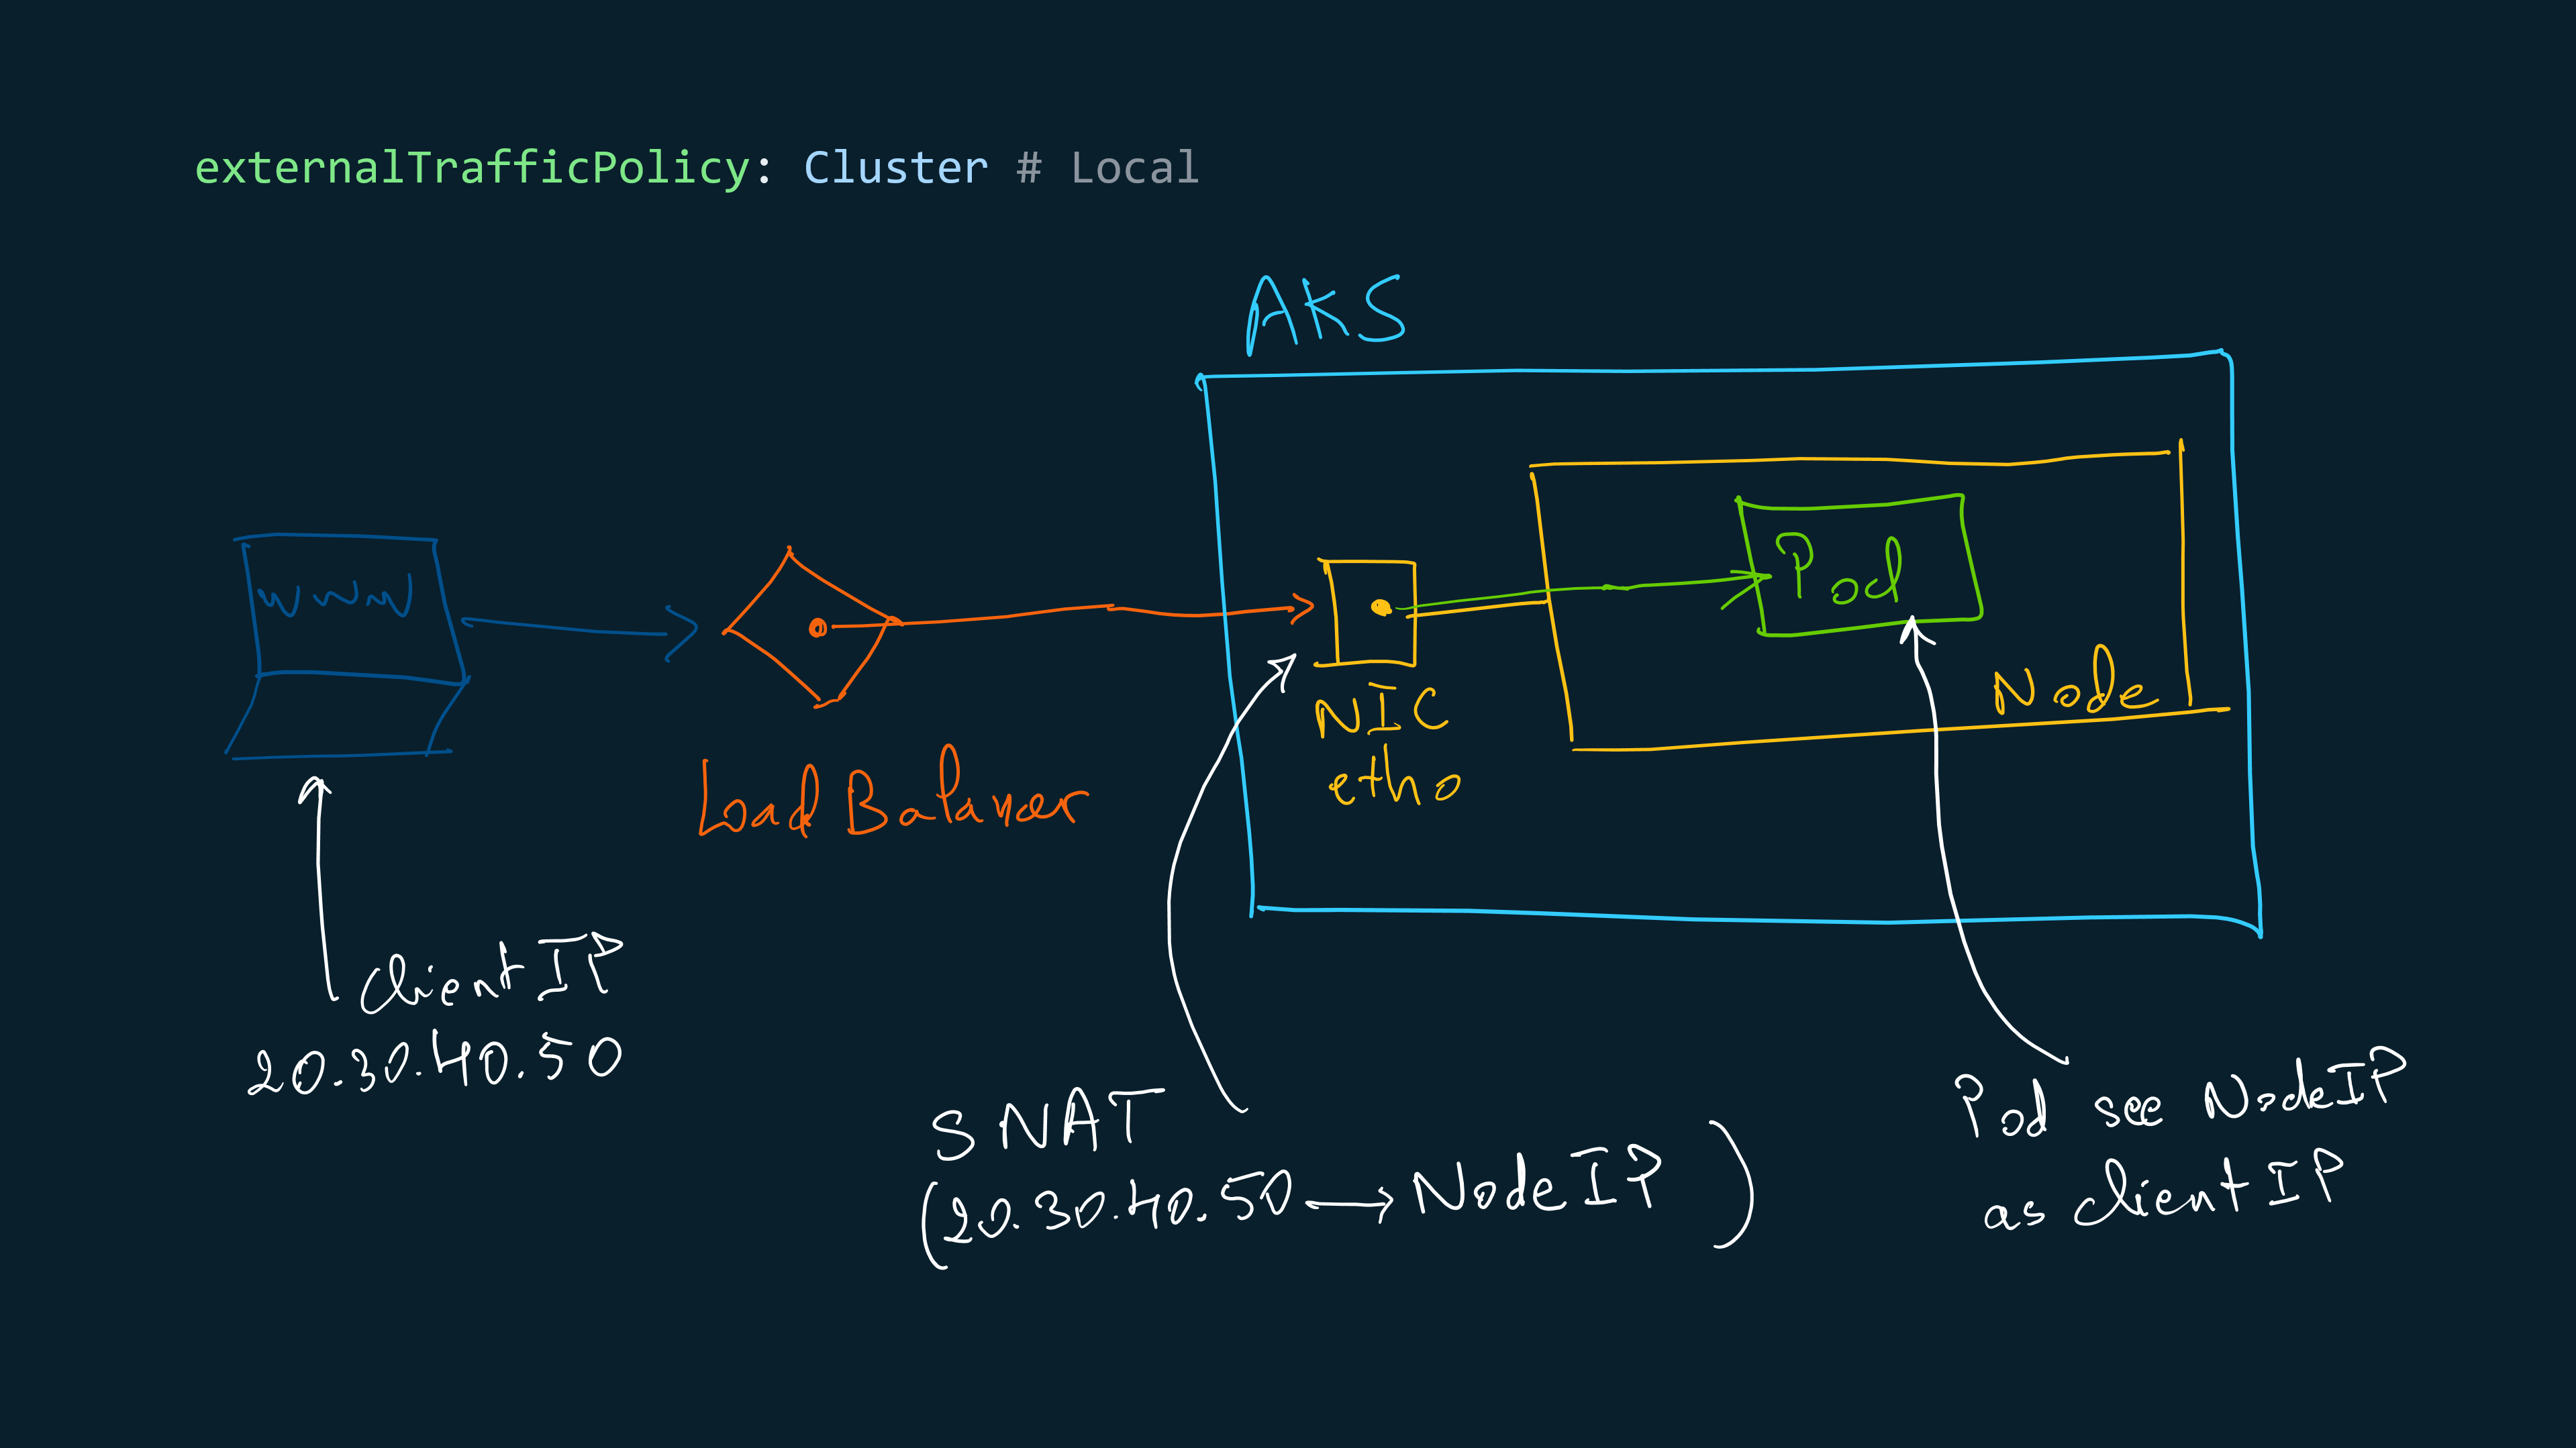 externalTrafficPolicy: Cluster # Local
AKS
WWW
Pod
Node
NIC
eth0
Load Balancer
Client IP
20.30.40.50
SNAT
(20.30.40.50 → NodeIP )
Pod see NodeIP
as client IP